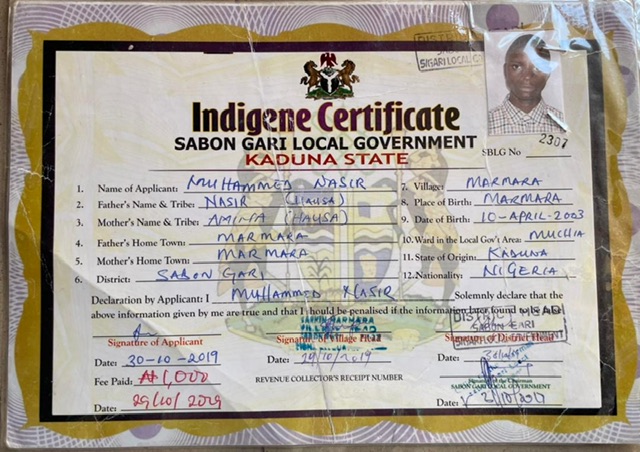 DISTRI
SIGARI LOCAL G
Indigene Certificate
SABON GARI LOCAL GOVERNMENT
KADUNA STATE
SBLG No 2307
1. Name of Applicant: MUHAMMED NASIR
2. Father's Name & Tribe: NASIR (HAUSA)
3. Mother's Name & Tribe: AMINA (HAUSA)
4. Father's Home Town: MARMARA
5. Mother's Home Town: MARMARA
6. District: SABON GARI
7. Village: MARMARA
8. Place of Birth: MARMARA
9. Date of Birth: 10-APRIL-2003
10. Ward in the Local Gov't Area: MUCHIA
11. State of Origin: KADUNA
12. Nationality: NIGERIA
Declaration by Applicant: I MUHAMMED NASIR Solemnly declare that the
above information given by me are true and that I should be penalised if the information later found to
DISTRICT HEAD
SABON GARI
SARKIN MARMARA
VILLAGE HEAD
Signature of Applicant
Signature of Village Head
Signature of District Head
Date: 30-10-2019
Date: 29/10/2019
Date:
Fee Paid: ₦1,000
REVENUE COLLECTOR'S RECEIPT NUMBER
SABON GARI LOCAL GOVERNMENT
Date: 29/10/2019
Date: